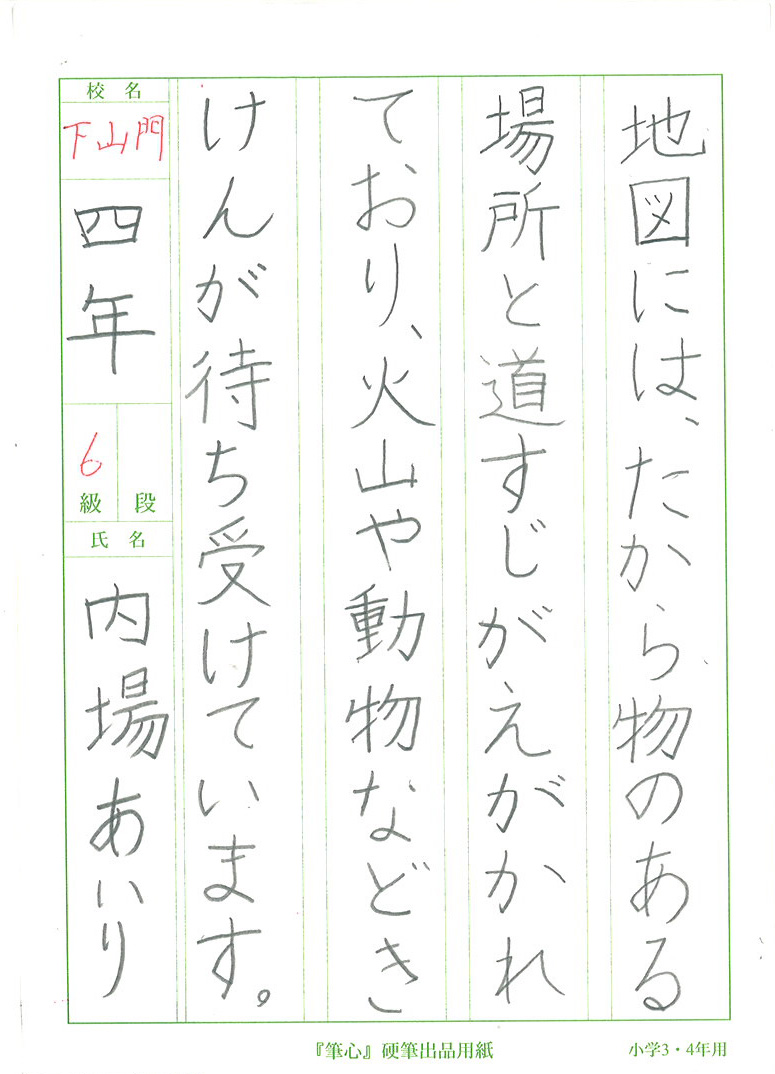 地図には、たから物のある
場所と道すじがえがかれ
ており、火山や動物などき
けんが待ち受けています。
校名
下山門
四年
6
級
段
氏名
内場あいり
『筆心』硬筆出品用紙
小学3・4年用